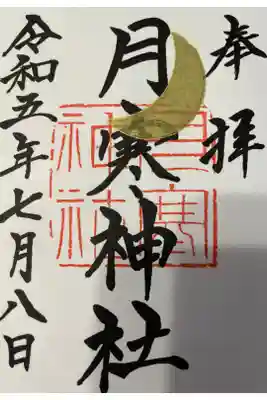 奉拝
月寒神社
月寒神社
令和五年七月八日